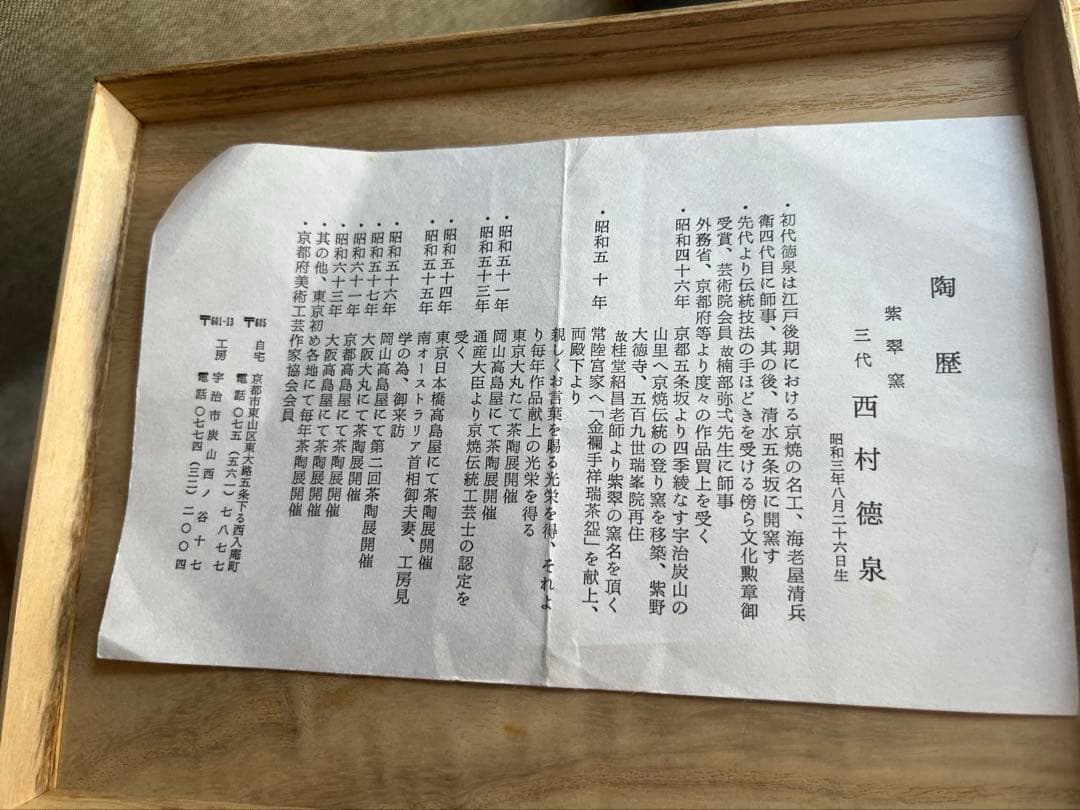 陶歴
紫翠窯
三代 西村德泉
昭和三年八月二十六日生
・初代德泉は江戸後期における京焼の名工、海老屋清兵
衛四代目に師事、其の後、清水五条坂に開窯す
・先代より伝統技法の手ほどきを受ける傍ら文化勲章御
受賞、芸術院会員故楠部弥弌先生に師事
外務省、京都府等より度々の作品買上を受く
・昭和四十六年 京都五条坂より四季綾なす宇治炭山の
山里へ京焼伝統の登り窯を移築、紫野
大徳寺、五百九世瑞峯院再住
故桂堂紹昌老師より紫翠の窯名を頂く
・昭和五十年 常陸宮家へ「金襴手祥瑞茶盌」を献上、
両殿下より
親しくお言葉を賜る光栄を得、それよ
り毎年作品献上の光栄を得る
・昭和五十一年 東京大丸たて茶陶展開催
・昭和五十三年 岡山高島屋にて茶陶展開催
通産大臣より京焼伝統工芸士の認定を
受く
・昭和五十四年 東京日本橋高島屋にて茶陶展開催
・昭和五十五年 南オーストラリア首相御夫妻、工房見
学の為、御来訪
・昭和五十六年 岡山高島屋にて第二回茶陶展開催
・昭和五十七年 大阪大丸にて茶陶展開催
・昭和六十一年 京都高島屋にて茶陶展開催
・昭和六十三年 大阪高島屋にて茶陶展開催
・其の他、東京初め各地にて毎年茶陶展開催
京都府美術工芸作家協会会員
〒605 自宅 京都市東山区東大路五条下る西入庵町
電話〇七五(五六一)七八七七
〒611-13 工房 宇治市炭山西ノ谷十七
電話〇七七四(三二)二〇〇四